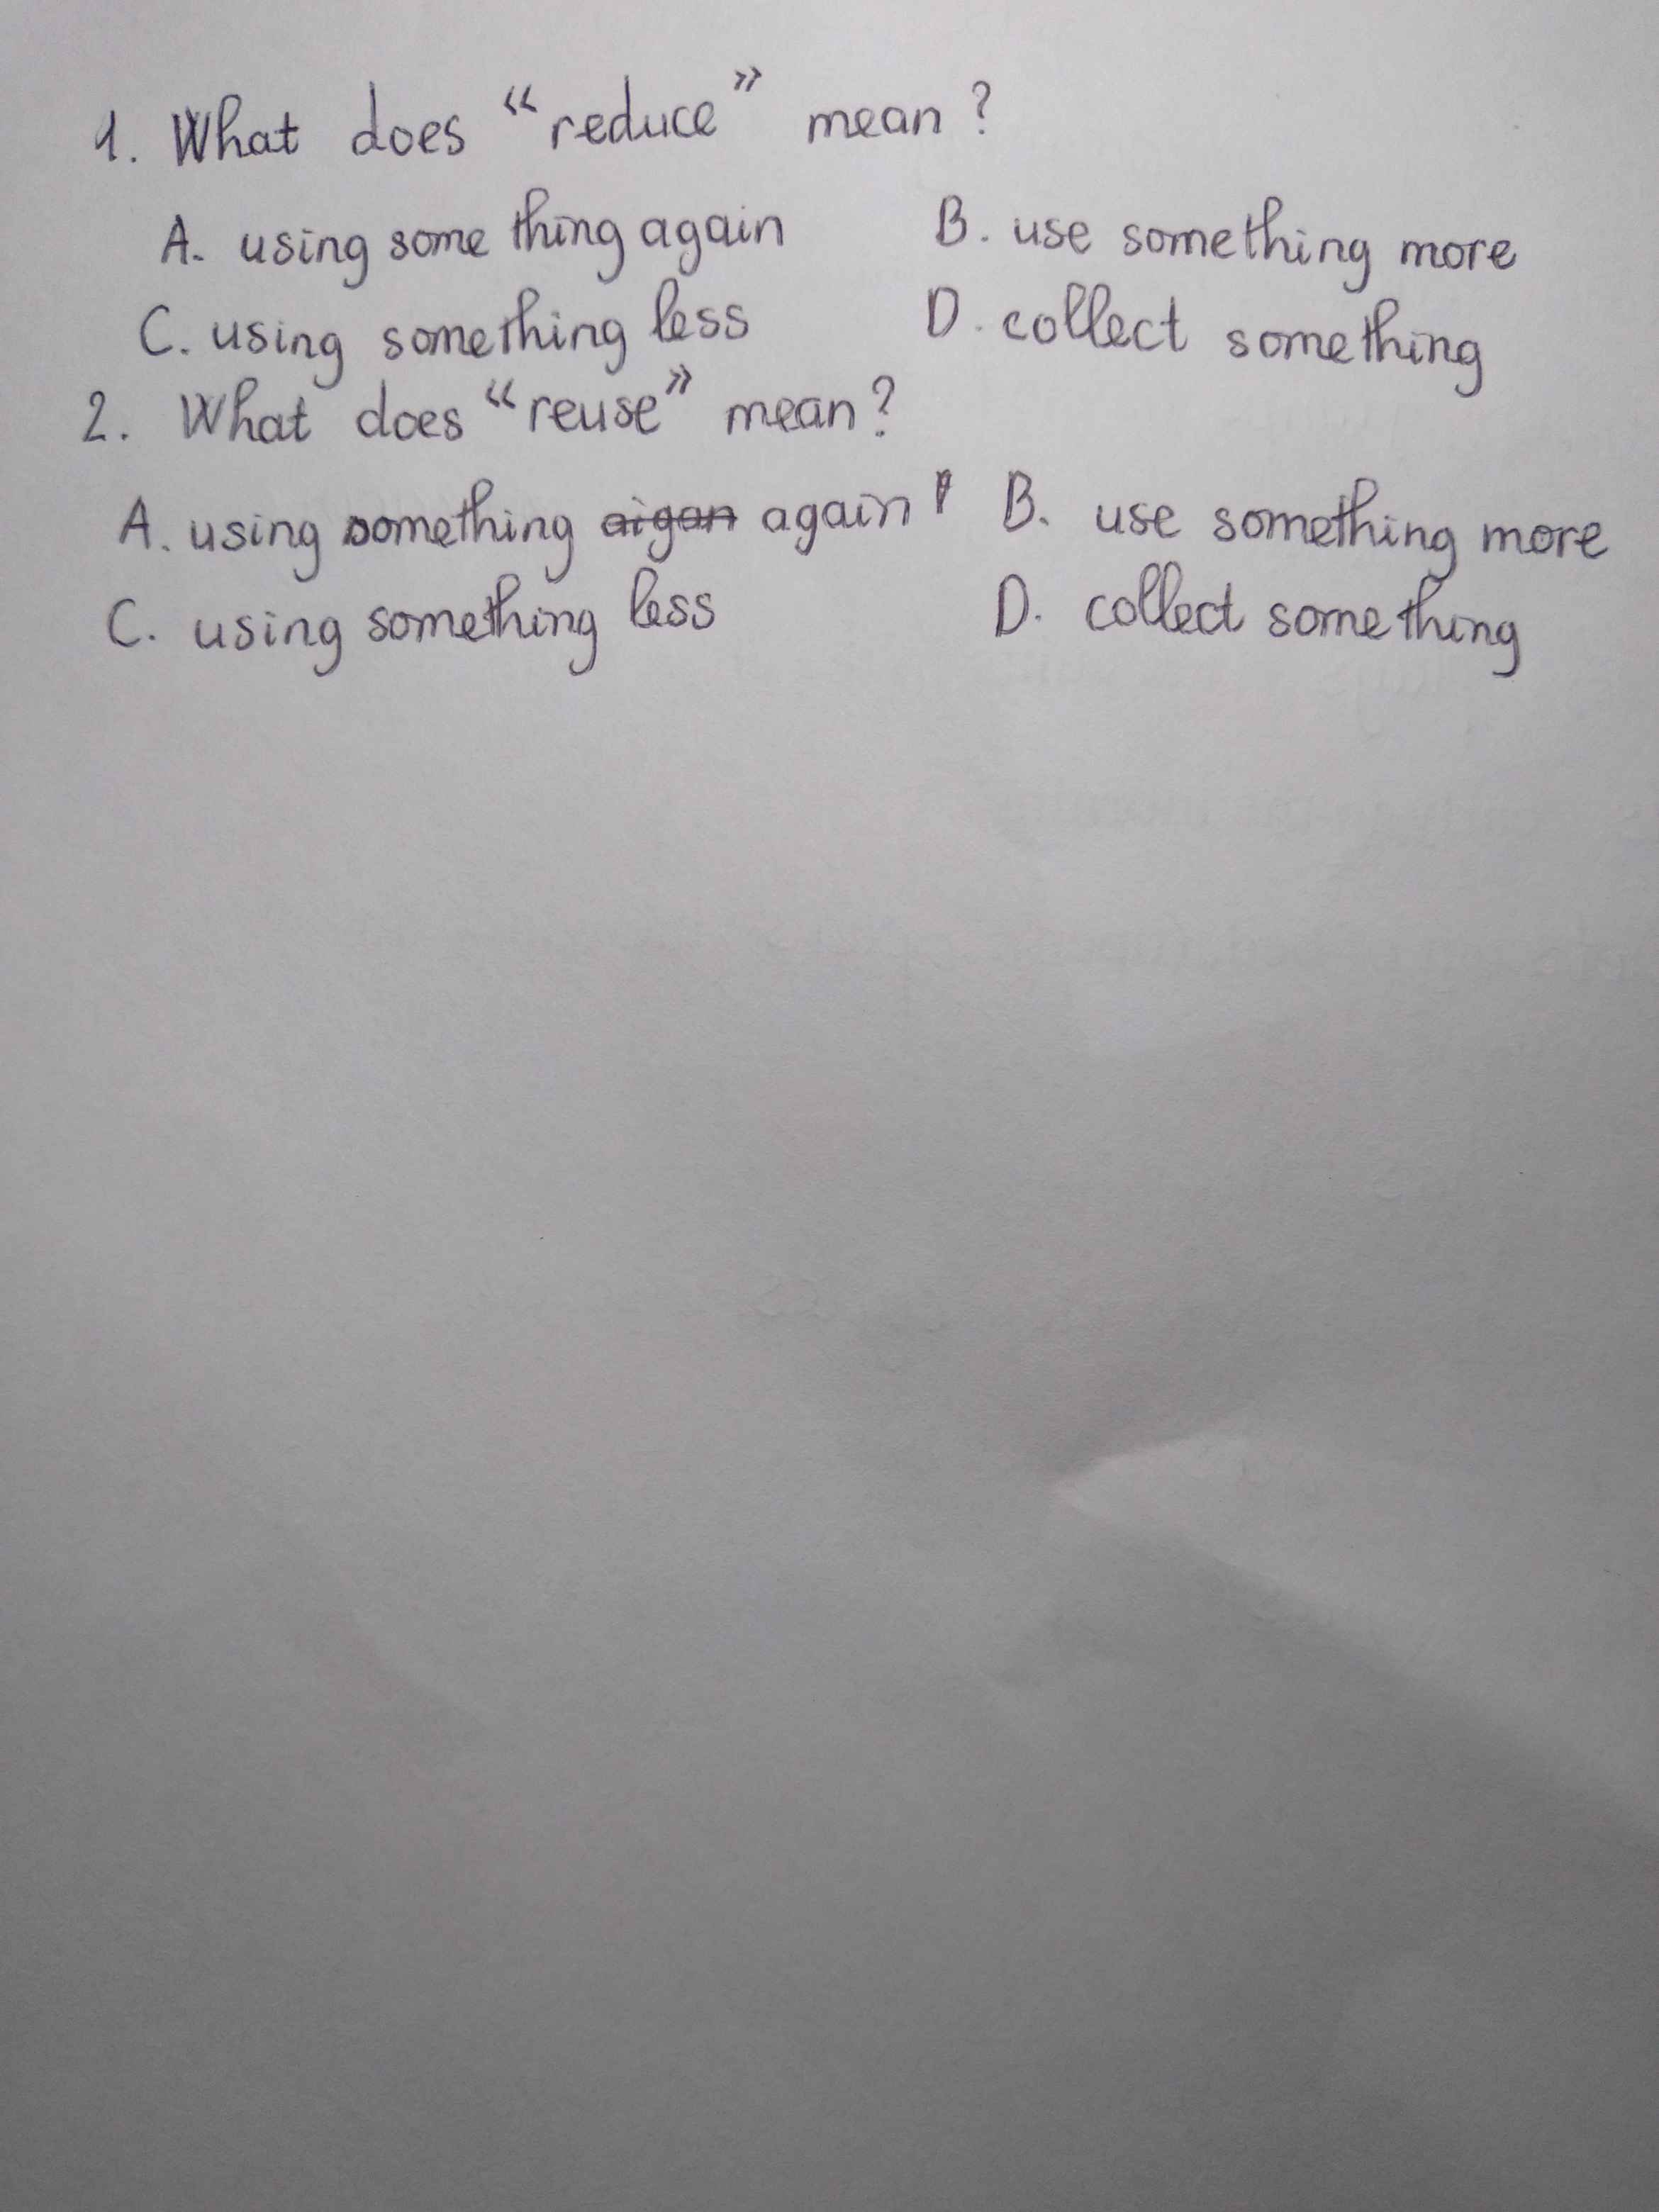 1. What does “reduce” mean?
A. using some thing again B. use something more
C. using something less D. collect something
2. What does “reuse” mean?
A. using something aigan again B. use something more
C. using something less D. collect something